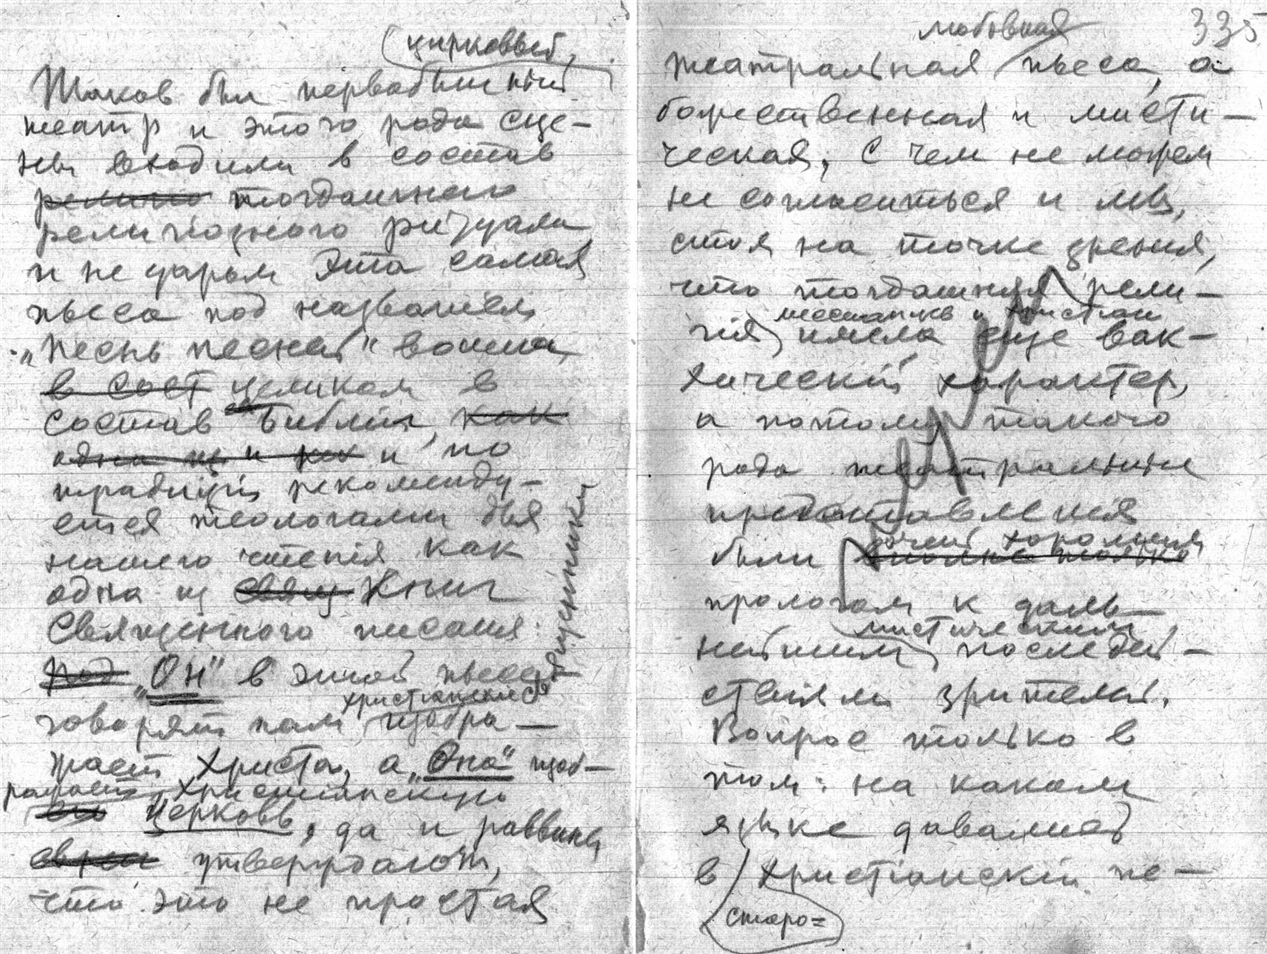 (церковный)
Таков был первобытный
театр и этого рода сце-
ны входили в состав
религіо тогдашнего
религіозного ритуала
и не даром эта самая
пьеса под названіем
„Песнь песней" вошла
в сост целиком в
состав Библіи, как
одна из и по
традиціи рекоменду-
ется теологами для
нашего чтенія как
одна из свящ Книг
Священного писанія.
Под „Он" в этой пьесе
священники
говорят нам христіанские изобра-
жает Христа, а „Она" изоб-
ражает Христіанскую
его Церковь, да и раввины
евреи утверждают,
что это не простая
335
любовная
театральная пьеса, а
божественная и мисти-
ческая, с чем не можем
не согласиться и мы,
стоя на точке зрения,
что тогдашняя рели-
мессіанцев и христіан
гія имела еще вак-
хическій характер,
а потому такого
рода театральные
представленія
очень хорошим
были вполне только
прологом к даль-
мистическим
нейшим последей-
ствіям зрителей.
Вопрос только в
том: на каком
языке давались
в христіанскій пе-
старо=